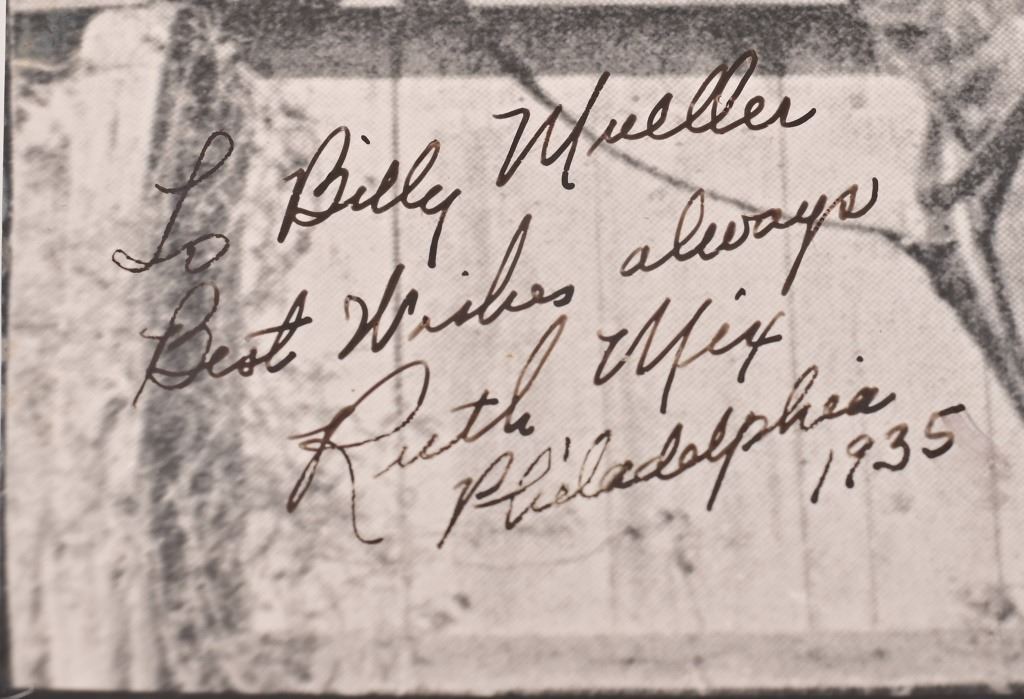 To Billy Mueller
Best Wishes always
Ruth Mix
Philadelphia
1935